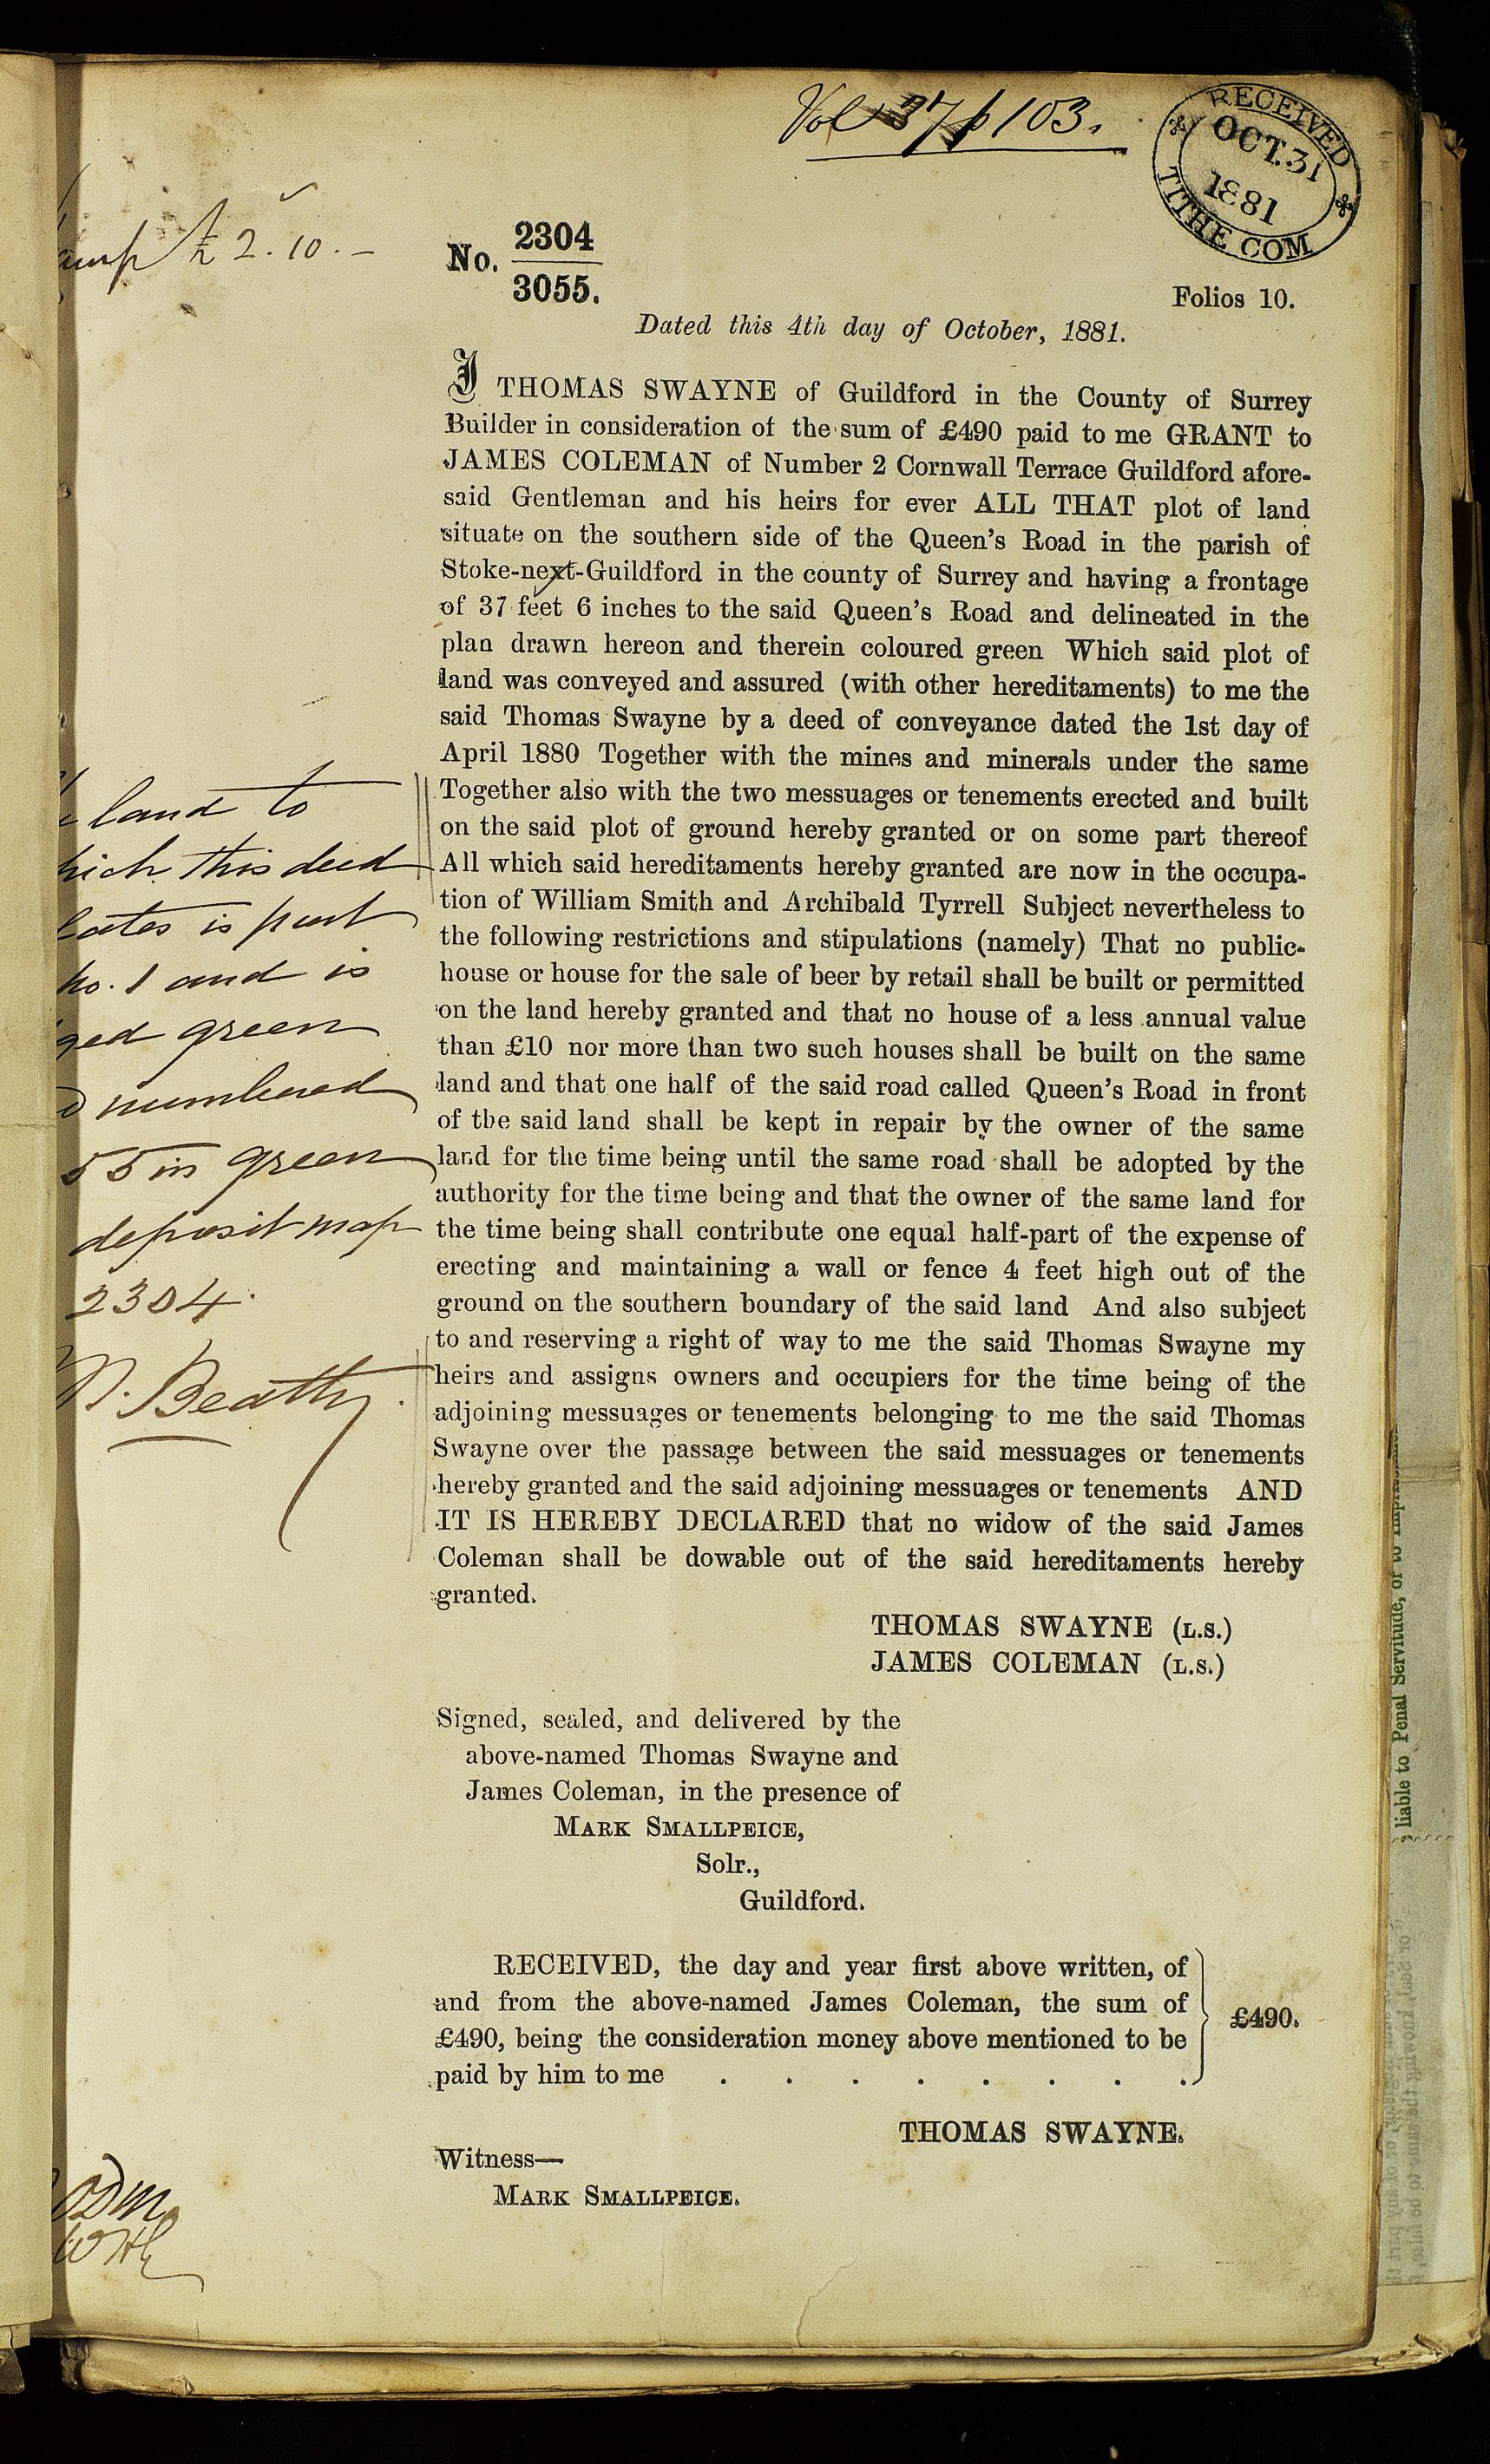 Vol 37 p 103.
RECEIVED
OCT. 31
1881
TITHE COM
£2.10.-
No. 2304
3055.
Folios 10.
Dated this 4th day of October, 1881.
I THOMAS SWAYNE of Guildford in the County of Surrey
Builder in consideration of the sum of £490 paid to me GRANT to
JAMES COLEMAN of Number 2 Cornwall Terrace Guildford afore-
said Gentleman and his heirs for ever ALL THAT plot of land
situate on the southern side of the Queen's Road in the parish of
Stoke-next-Guildford in the county of Surrey and having a frontage
of 37 feet 6 inches to the said Queen's Road and delineated in the
plan drawn hereon and therein coloured green Which said plot of
land was conveyed and assured (with other hereditaments) to me the
said Thomas Swayne by a deed of conveyance dated the 1st day of
April 1880 Together with the mines and minerals under the same
Together also with the two messuages or tenements erected and built
on the said plot of ground hereby granted or on some part thereof
All which said hereditaments hereby granted are now in the occupa-
tion of William Smith and Archibald Tyrrell Subject nevertheless to
the following restrictions and stipulations (namely) That no public-
house or house for the sale of beer by retail shall be built or permitted
on the land hereby granted and that no house of a less annual value
than £10 nor more than two such houses shall be built on the same
land and that one half of the said road called Queen's Road in front
of the said land shall be kept in repair by the owner of the same
land for the time being until the same road shall be adopted by the
authority for the time being and that the owner of the same land for
the time being shall contribute one equal half-part of the expense of
erecting and maintaining a wall or fence 4 feet high out of the
ground on the southern boundary of the said land And also subject
to and reserving a right of way to me the said Thomas Swayne my
heirs and assigns owners and occupiers for the time being of the
adjoining messuages or tenements belonging to me the said Thomas
Swayne over the passage between the said messuages or tenements
hereby granted and the said adjoining messuages or tenements AND
IT IS HEREBY DECLARED that no widow of the said James
Coleman shall be dowable out of the said hereditaments hereby
granted.
THOMAS SWAYNE (L.S.)
JAMES COLEMAN (L.S.)
Signed, sealed, and delivered by the
above-named Thomas Swayne and
James Coleman, in the presence of
MARK SMALLPEICE,
Solr.,
Guildford.
RECEIVED, the day and year first above written, of
and from the above-named James Coleman, the sum of
£490, being the consideration money above mentioned to be
paid by him to me . . . . . . . .
£490.
THOMAS SWAYNE.
Witness—
MARK SMALLPEICE.
land to
hich this deed
lates is part
no. 1 and is
ged green
numbered
55 in green
deposit map
2304.
Beatty.
liable to Penal Servitude, or to